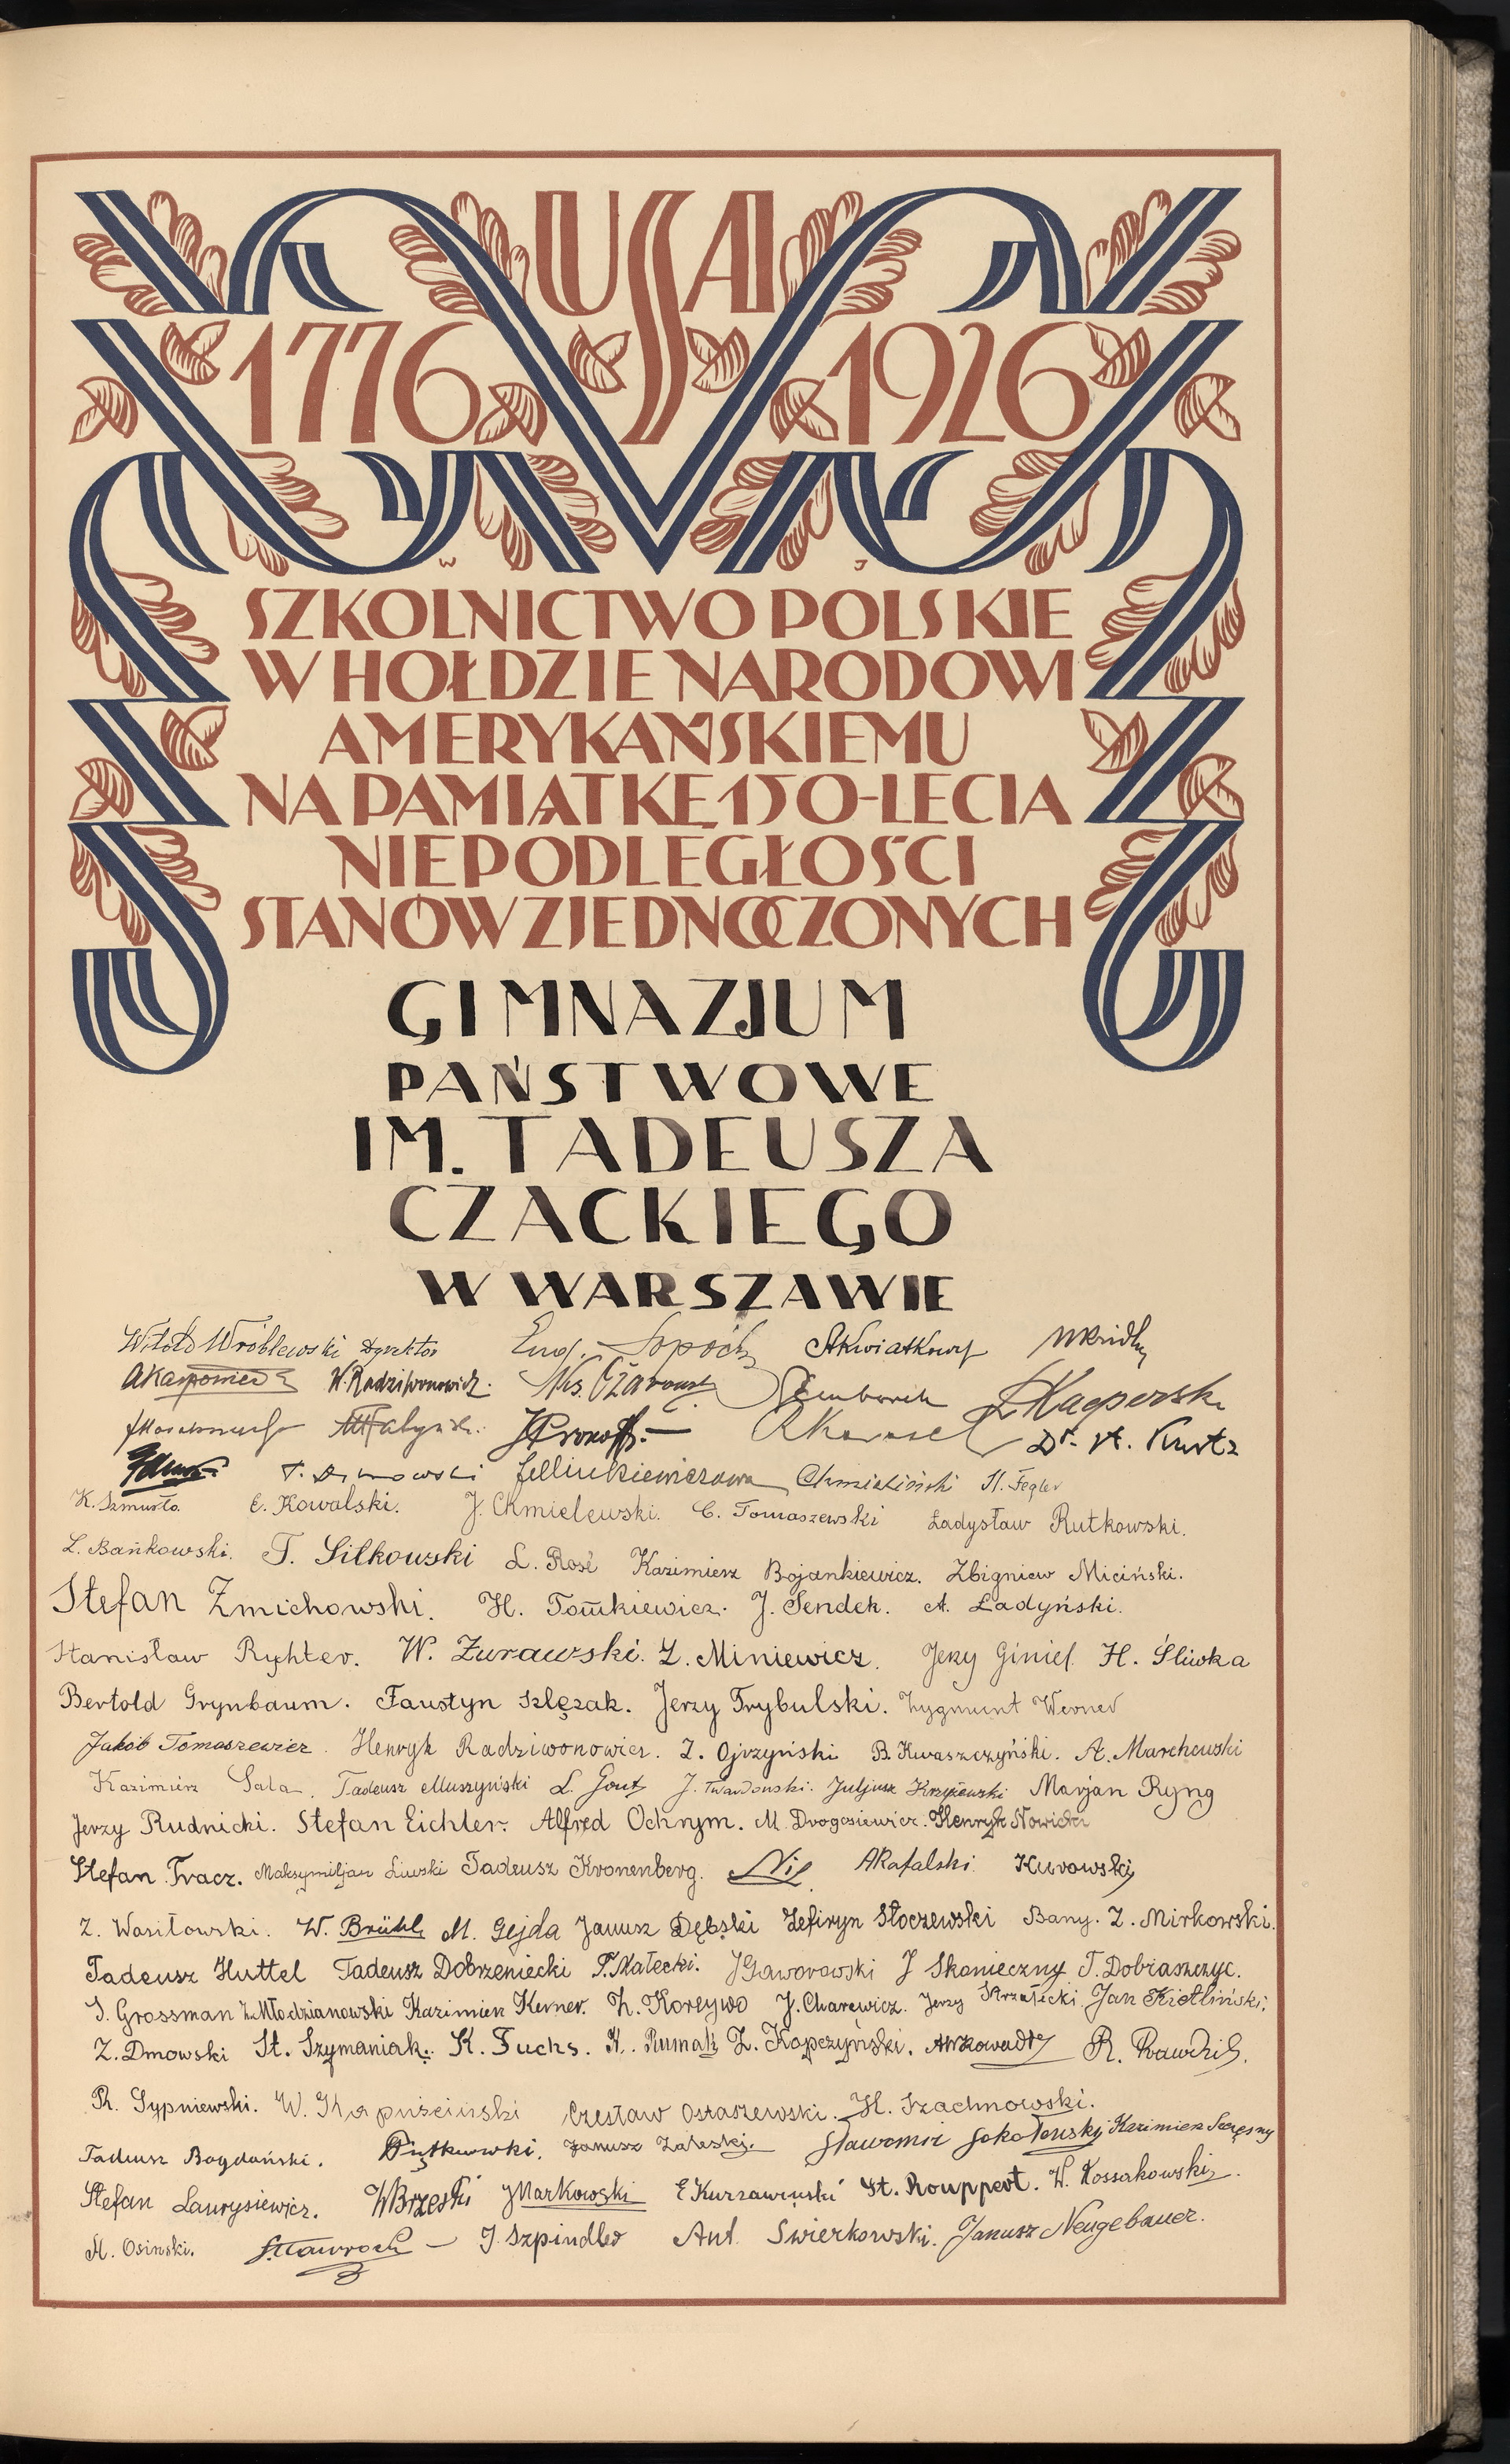 USA
1776 1926
W J
SZKOLNICTWO POLSKIE
W HOŁDZIE NARODOWI
AMERYKAŃSKIEMU
NA PAMIĄTKĘ 150-LECIA
NIEPODLEGŁOŚCI
STANÓW ZJEDNOCZONYCH
GIMNAZJUM
PAŃSTWOWE
IM. TADEUSZA
CZACKIEGO
W WARSZAWIE
Witold Wróblewski Dyrektor Eug. AKwiatkowski
W. Radziwonowicz. Ks. LKacperski
Dr. A. Kurtz
T. Dynowski Chmieliński H. Fegler
K. Szmurło. E. Kowalski. J. Chmielewski. C. Tomaszewski Ładysław Rutkowski.
L. Bańkowski. T. Silkowski L. Rosé Kazimierz Bojankiewicz. Zbigniew Miciński.
Stefan Żmichowski. H. Tomkiewicz. J. Sendek. A. Ładyński.
Stanisław Rychter. W. Żurawski. Z. Miniewicz. Jerzy Giniel. H. Śliwka
Bertold Grynbaum. Faustyn Szlęzak. Jerzy Trybulski. Zygmunt Werner
Jakób Tomaszewicz. Henryk Radziwonowicz. Z. Ojrzyński B. Kwaszczyński. A. Marchewski
Kazimierz Sala. Tadeusz Muszyński L. Gout J. Twardowski. Juljusz Krzyżewski Marjan Ryng
Jerzy Rudnicki. Stefan Eichler. Alfred Ochrym. M. Drogosiewicz. Henryk Nowicki
Stefan Tracz. Maksymiljan Liwski Tadeusz Kronenberg. ARafalski. Kurowski
Z. Wasiłowski. W. Brühl M. Gejda Janusz Dębski Zefiryn Stoczewski Bany. Z. Mirkowski.
Tadeusz Huttel Tadeusz Dobrzeniecki T. Małecki. JGaworowski J Skonieczny T. Dobraszczyc.
S. Grossman Z. Młodzianowski Kazimierz Kerner. Z. Koreywo J. Charewicz. Jerzy Strzałecki Jan Kietliński.
Z. Dmowski St. Szymaniak. K. Fuchs. K. Rumak Z. Kopczyński. R. Rawdzik.
R. Sypniewski. W. Kapuściński Czesław Ostaszewski. H. Szachnowski.
Tadeusz Bogdański. Piątkowski. Janusz Zaleski. Sławomir Sokołowski Kazimierz Szczęsny
Stefan Laurysiewicz. WBrzeski JMarkowski E Kurzawiński St. Rouppert. W. Kossakowski.
M. Osinski. J. Szpindler Ant. Swierkowski. Janusz Neugebauer.